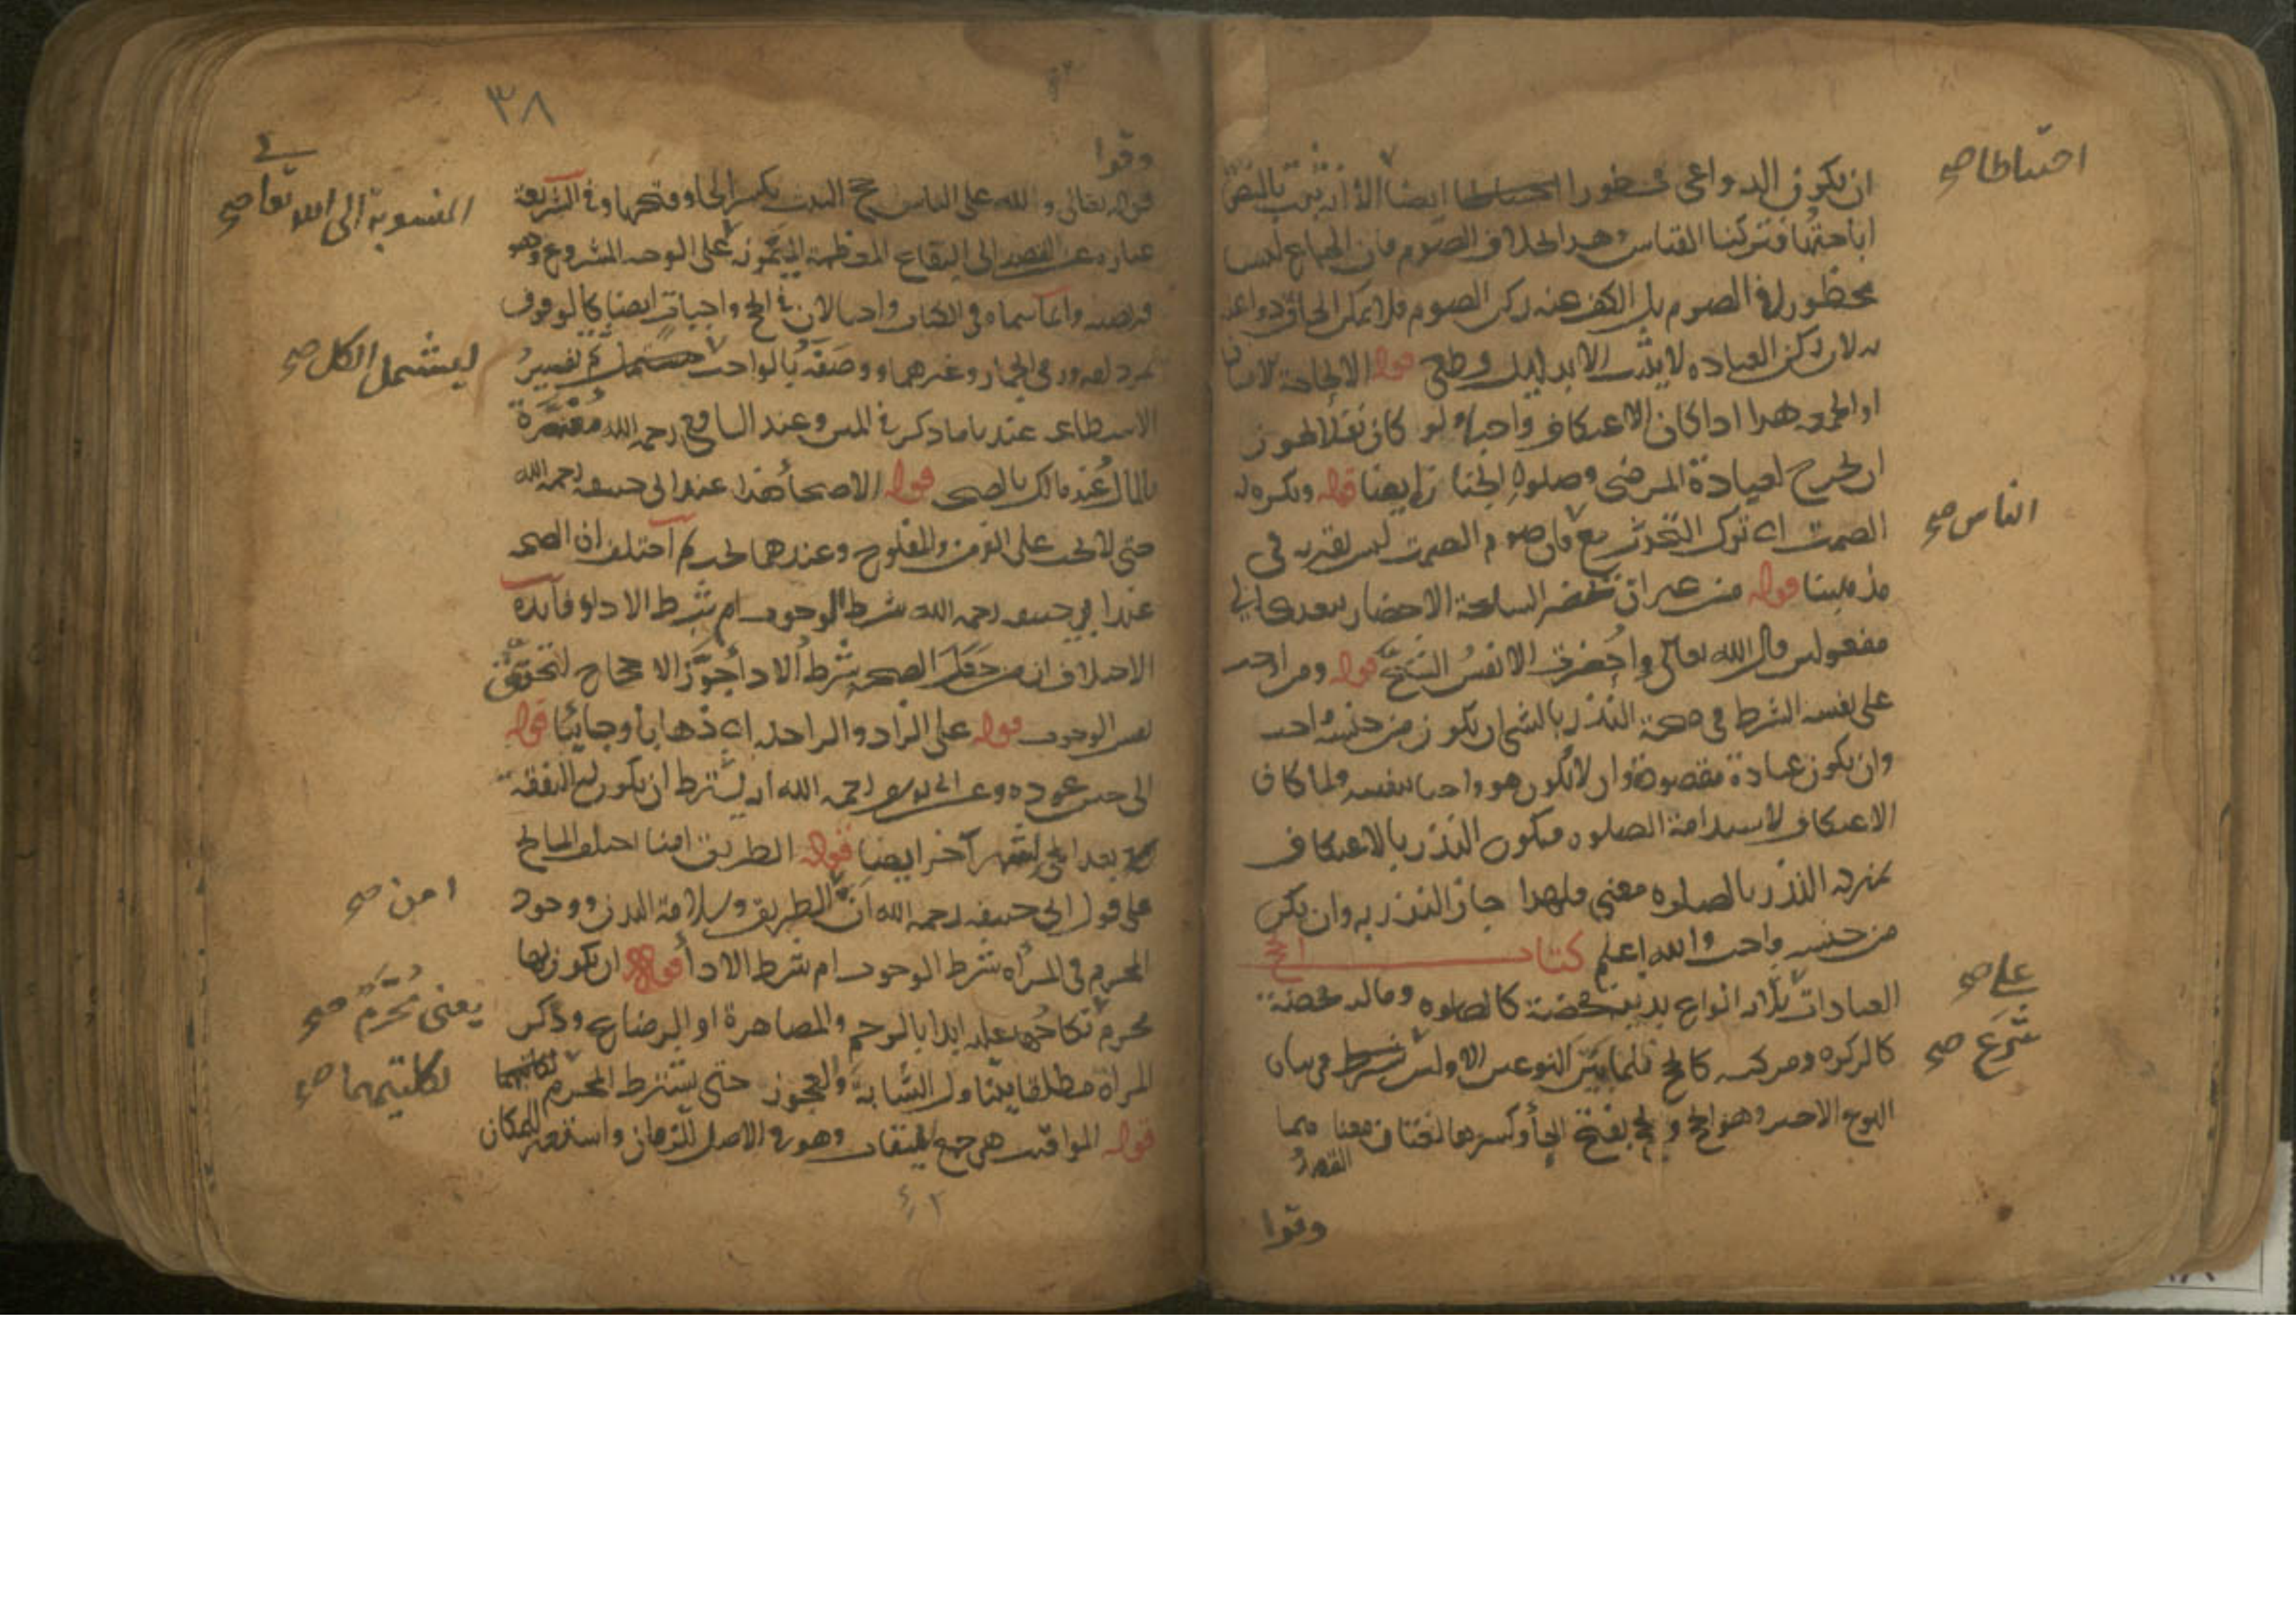 احتياطا صح
ان يكون الدواعي محظورا احتياطا ايضا الا انه ثبت بالنص
اباحتها فتركنا القياس وهذا بخلاف الصوم فان الجماع ليس
محظور في الصوم بل الكف عنه ركن الصوم فلا يمكن الحاق دواعيه
به لان ركن العباده لا يثبت الا بدليل قطعي قوله الا لحاجة الانسان
او الجمعه هذا اذا كان الاعتكاف واجبا ولو كان نفلا يجوز
ان يخرج لعيادة المرضى وصلوة الجنازة ايضا قوله ويكره له
الناس صح
الصمت اي ترك التحدث مع فان صوم الصمت ليس بقربه في
مذهبنا قوله من غير ان تحضر السلعة الاحضار يتعدى الى
مفعولين قال الله تعالى واحضرت الانفس الشح قوله ومن اوجب
على نفسه الشرط في صحة النذر بالشي ان يكون من جنسه واجب
وان يكون عبادة مقصودة وان لا يكون هو واجبا بنفسه ولما كان
الاعتكاف لاستدامة الصلوه فيكون النذر بالاعتكاف
بمنزلة النذر بالصلوه معنى فلهذا جاز النذر به وان لم يكن
من جنسه واجب والله اعلم كتاب الحج
على صح
العبادات ثلاثه انواع بدنيه محضة كالصلوه وماليه محضة
شرع صح
كالزكوه ومركبه كالحج فلما بين النوعين الاولين شرط في بيان
النوع الاخير وهو الحج والحج بفتح الحاء وكسرها لغتان معناهما
القصد
وقوا
٣٨
وقوا
المنسوبة الى الله تعا صح
قوله تعالى ولله على الناس حج البيت بكسر الحاء وفتحها وفي الشريعة
عباره عن القصد الى البقاع المعظمة على الوجه المشروع وهو
فريضه وانما سماه في الكتاب واجبا لان في الحج واجبات ايضا كالوقوف
ليشمل الكل صح
بمزدلفه ورمي الجمار وغيرهما ووصفه بالواجب ثم تفسير
الاستطاعه عندنا ما ذكر في المتن وعند الشافعي رحمه الله
بالمال وعند مالك بالصحه قوله الاصحاء هذا عند ابي حنيفه رحمه الله
حتى لا يجب على الزمن والمفلوج وعندهما يجب ثم اختلف ان الصحه
عند ابي حنيفه رحمه الله شرط الوجوب ام شرط الاداء وفائدة
الاختلاف ان من جعل الصحه شرط الاداء جوز الاحجاج لتحقق
نفس الوجوب قوله على الزاد والراحله اي ذهابا وجائيا قوله
الى حين عوده وعن ابي يوسف رحمه الله انه يشترط ان يكون له النفقة
بعد الحج لشهر آخر ايضا قوله الطريق امنا اختلف المشايخ
امن صح
على قول ابي حنيفه رحمه الله ان الطريق وسلامة البدن ووجود
المحرم في المرأه شرط الوجوب ام شرط الاداء قوله ان يكون لها
يعنى محرم صح
محرم نكاحها عليه ابدا بالرحم والمصاهرة او الرضاع وذكر
لكليتهما صح
المراة مطلقا يتناول الشابة والعجوز حتى يشترط المحرم
قوله المواقيت هي جمع الميقات وهو في الاصل للزمان واستعير للمكان